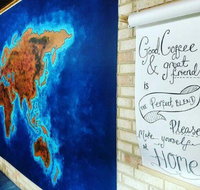 Good Coffee
& great
friend
is
THE Perfect BLEND
Please
Make yourself
at
Home